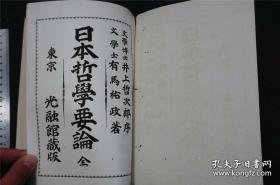 文學博士井上哲次郎序
文學士有馬祐政著
日本哲學要論 全
東京 光融館藏版
孔夫子旧书网